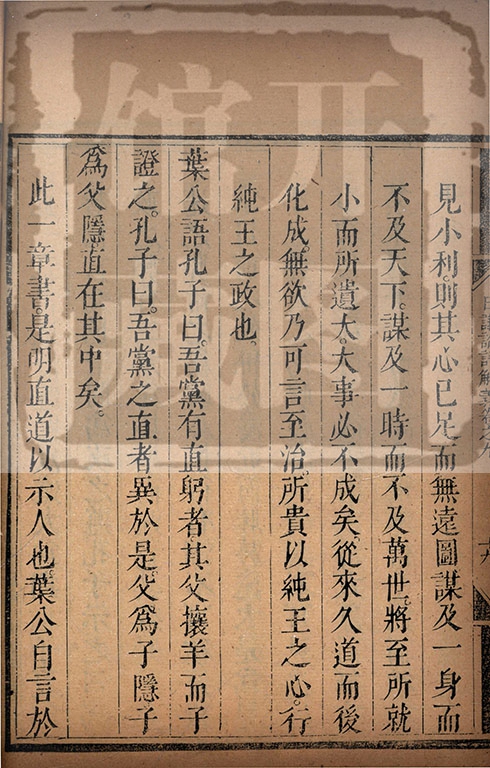 見小利則其心已足而無遠圖謀及一身而
不及天下。謀及一時而不及萬世。將至所就
小而所遺大。大事必不成矣。從來久道而後
化成。無欲乃可言至治。所貴以純王之心。行
純王之政也。
葉公語孔子曰。吾黨有直躬者。其父攘羊而子
證之。孔子曰。吾黨之直者異於是。父爲子隱子
爲父隱直在其中矣。
此一章書。是明直道以示人也。葉公自言於